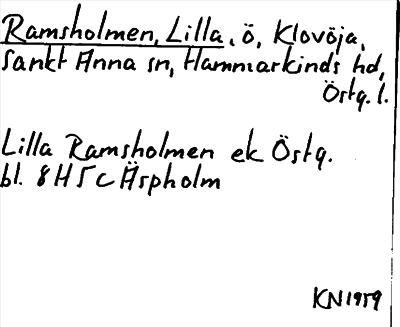 Ramsholmen, Lilla, ö, Klovöja,
Sankt Anna sn, Hammarkinds hd,
Östg. l.
Lilla Ramsholmen ek Östg.
bl. 8H5c Äspholm
KN1959